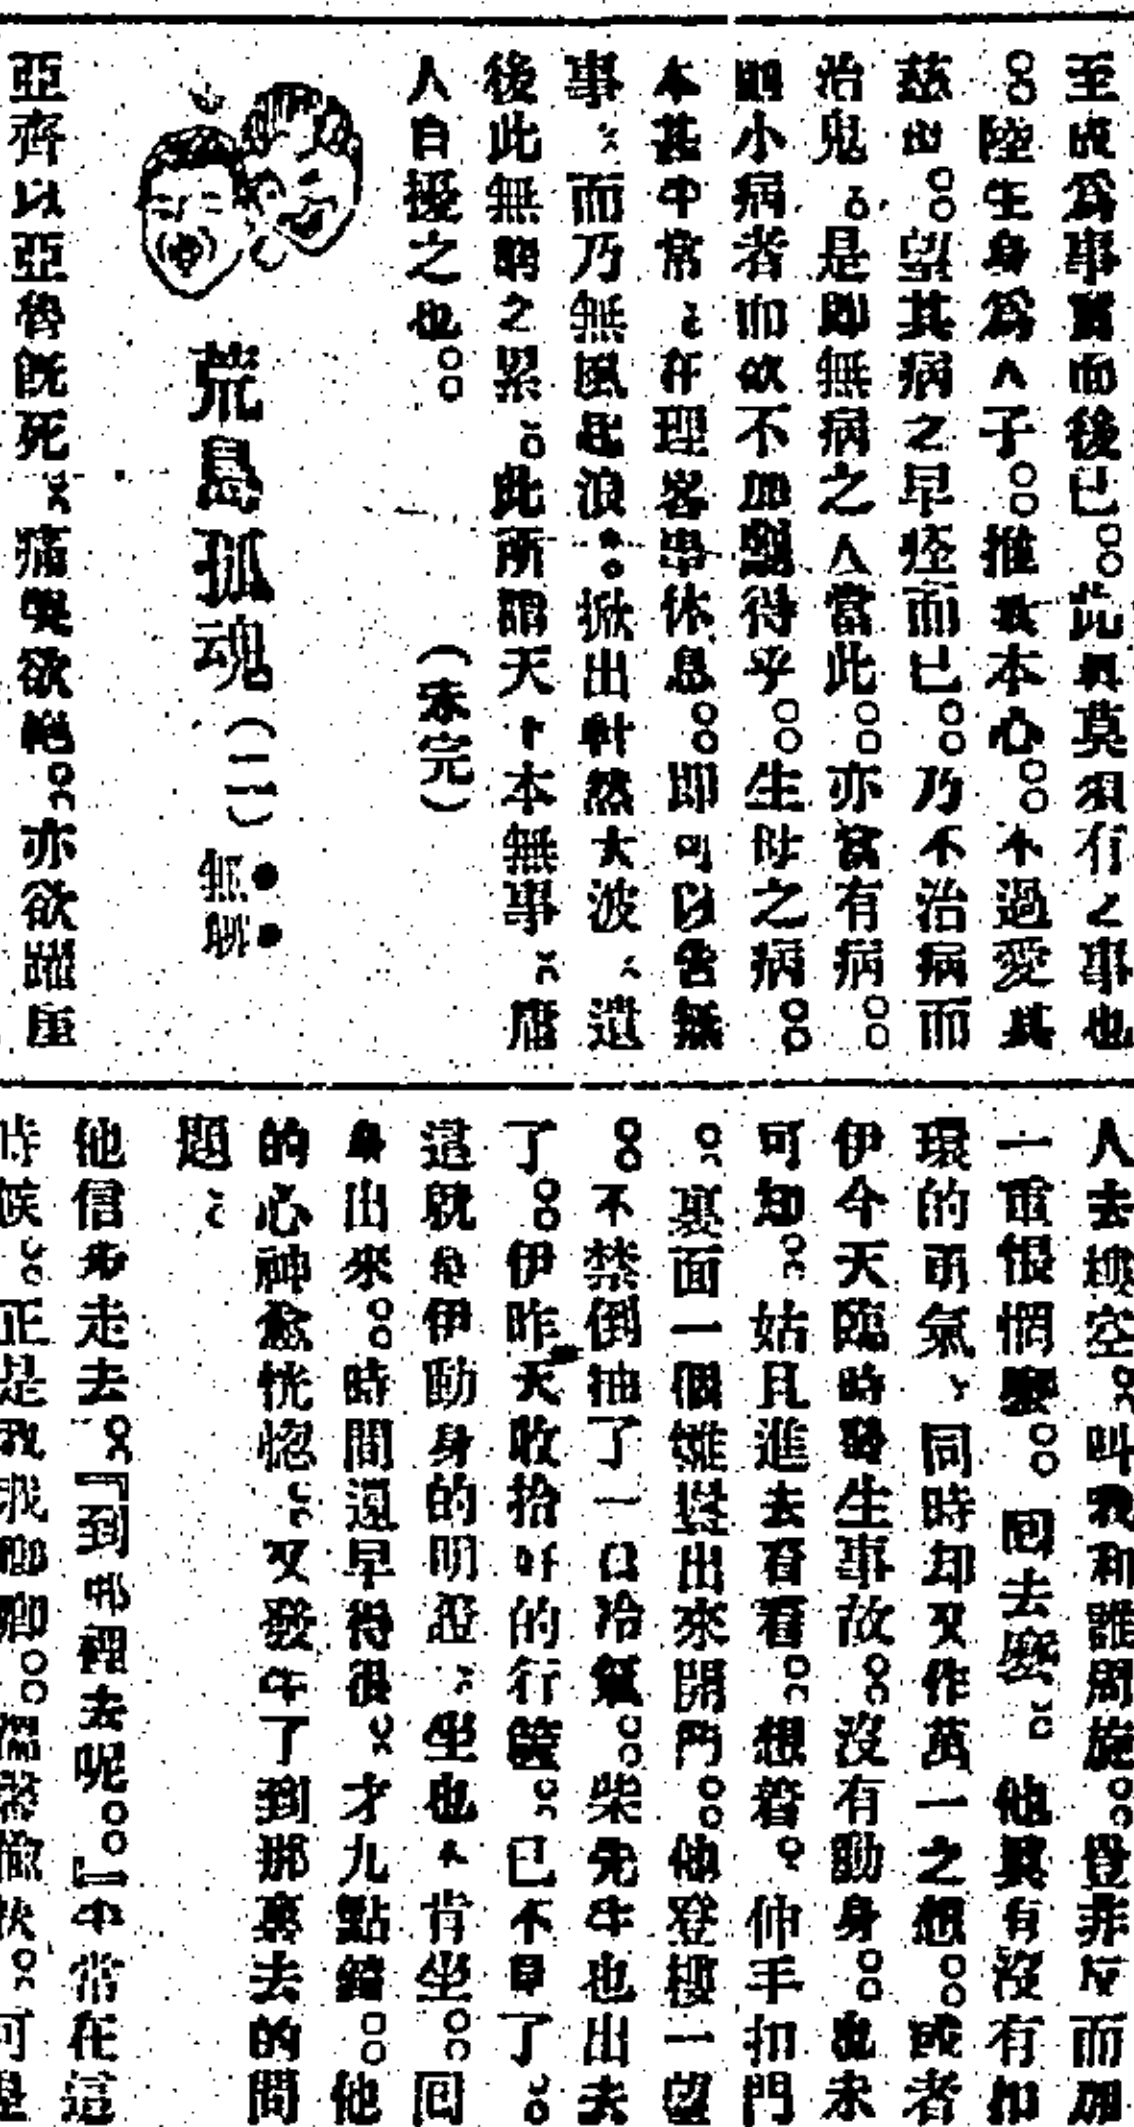 至成爲事實而後已。此眞莫須有之事也
。陸生身爲人子。推其本心。不過愛其
慈母。望其病之早痊而已。乃不治病而
治鬼。是即無病之人當此。亦當有病。
則小病者而欲不加劇得乎。生母之病。
本甚平常、在理客串休息。即可以告無
事、而乃無風起浪。掀出軒然大波、遺
後此無窮之累。此所謂天下本無事、庸
人自擾之也。
（未完）
荒島孤魂（二）
無聊
亞齊以亞魯旣死、痛哭欲絕。亦欲躍崖
人去樓空。叫我和誰周旋。豈非反而加
一重恨惘麼。回去麼。他眞有沒有扣
環的勇氣、同時却又作萬一之想。或者
伊今天臨時發生事故。沒有動身。也未
可知。姑且進去看看。想着。伸手扣門
。裏面一個雛鬟出來開門。他登樓一望
。不禁倒抽了一口冷氣。柴先生也出去
了。伊昨天收拾好的行篋。已不見了。
這就是伊動身的明證、坐也不肯坐。回
身出來。時間還早得很。才九點鐘。他
的心神愈恍惚。又發生了到那裏去的問
題、
他信步走去。『到哪裡去呢。』平常在這
時候。正是我我卿卿。偎傍偷快。可是